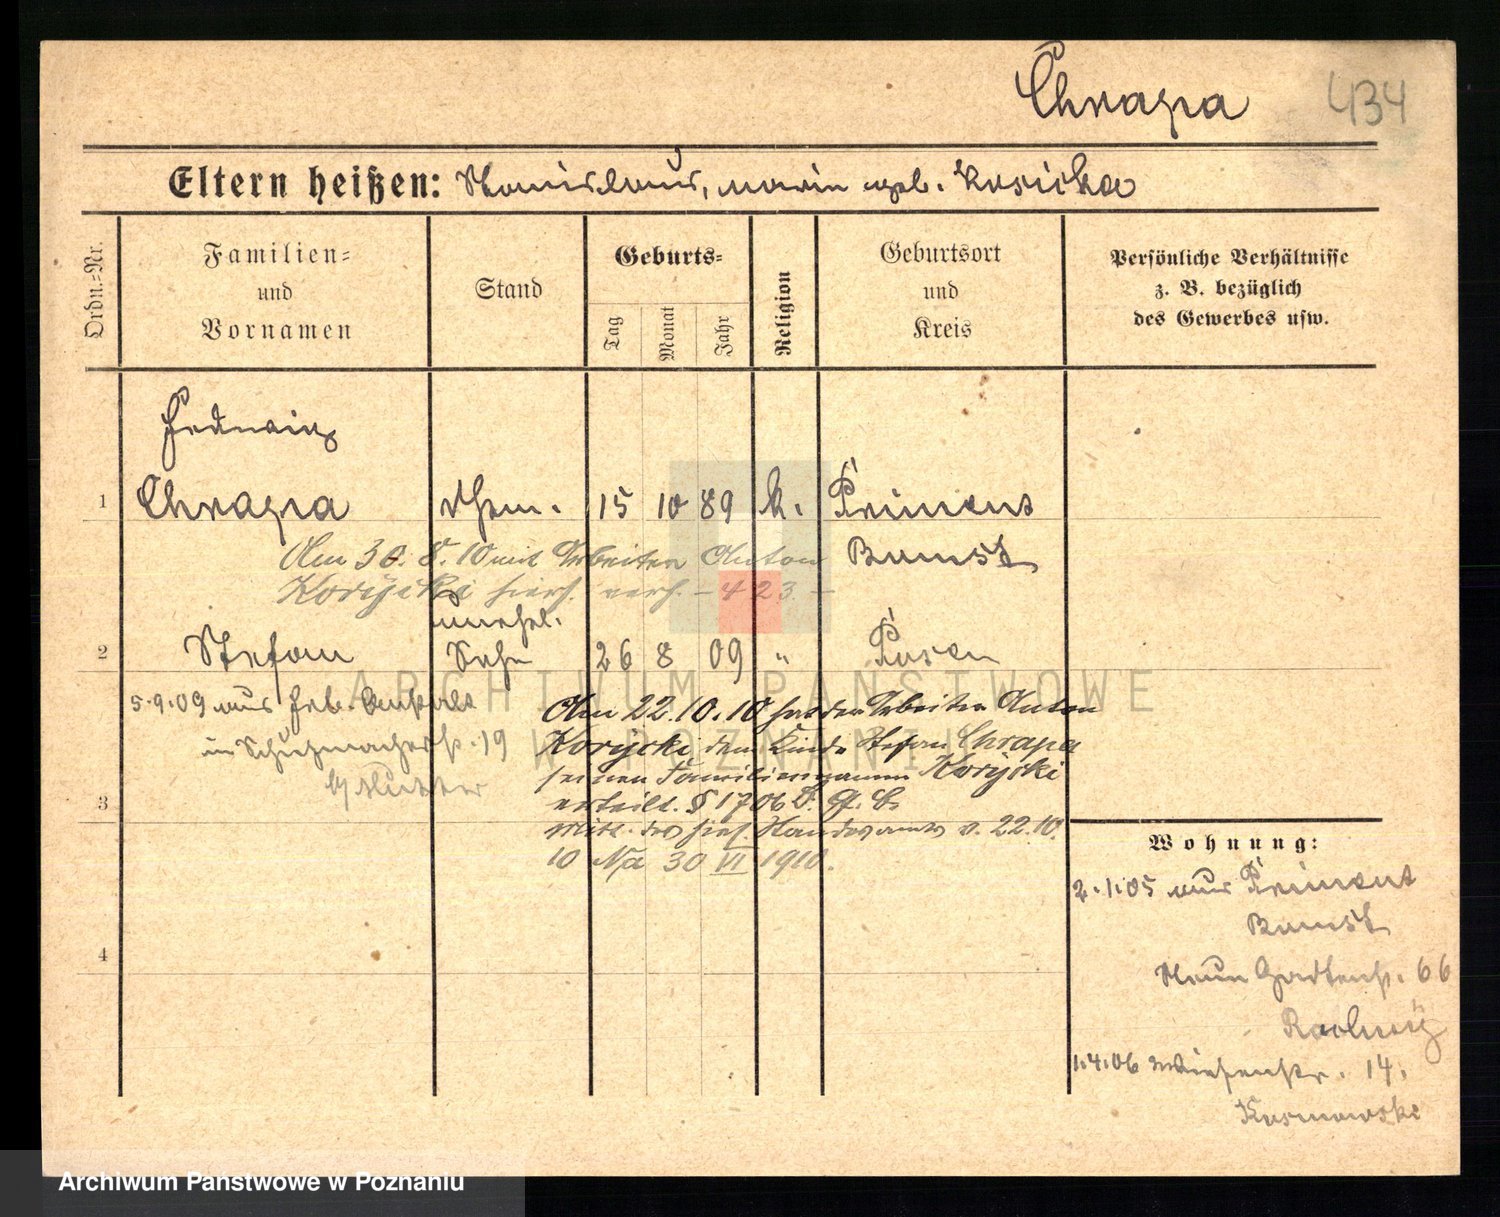 Chrapa 434
Eltern heißen: Stanislaus, Maria geb. Kosicka
Ordn.-Nr.
Familien-
und
Vornamen
Stand
Geburts-
Tag
Monat
Jahr
Religion
Geburtsort
und
Kreis
Persönliche Verhältnisse
z. B. bezüglich
des Gewerbes usw.
Hedwig
1 Chrapa 15 10 89 k. Priment
Bomst
Am 30. 8. 10 mit Arbeiter Anton
Korijcki hiers. verh. – 423 –
unehel.
2 Stefan Sohn 26 8 09 " Posen
5.9.09 aus Geb. Anstalt
in Schuhmacherstr. 19
b/ Mutter
Am 22.10.10 hat der Arbeiter Anton
Korijcki dem Kinde Stefan Chrapa
seinen Familiennamen Korijcki
erteilt. § 1706 B. G. B.
Mitt. des hies. Standesamts v. 22.10.
10 No 30 VI 1910.
3
4
Wohnung:
2.1.05 aus Priment
Bomst
Neue Gartenstr. 66
1.4.06 Wiesenstr. 14.
ARCHIWUM PAŃSTWOWE
W POZNANIU
Archiwum Państwowe w Poznaniu